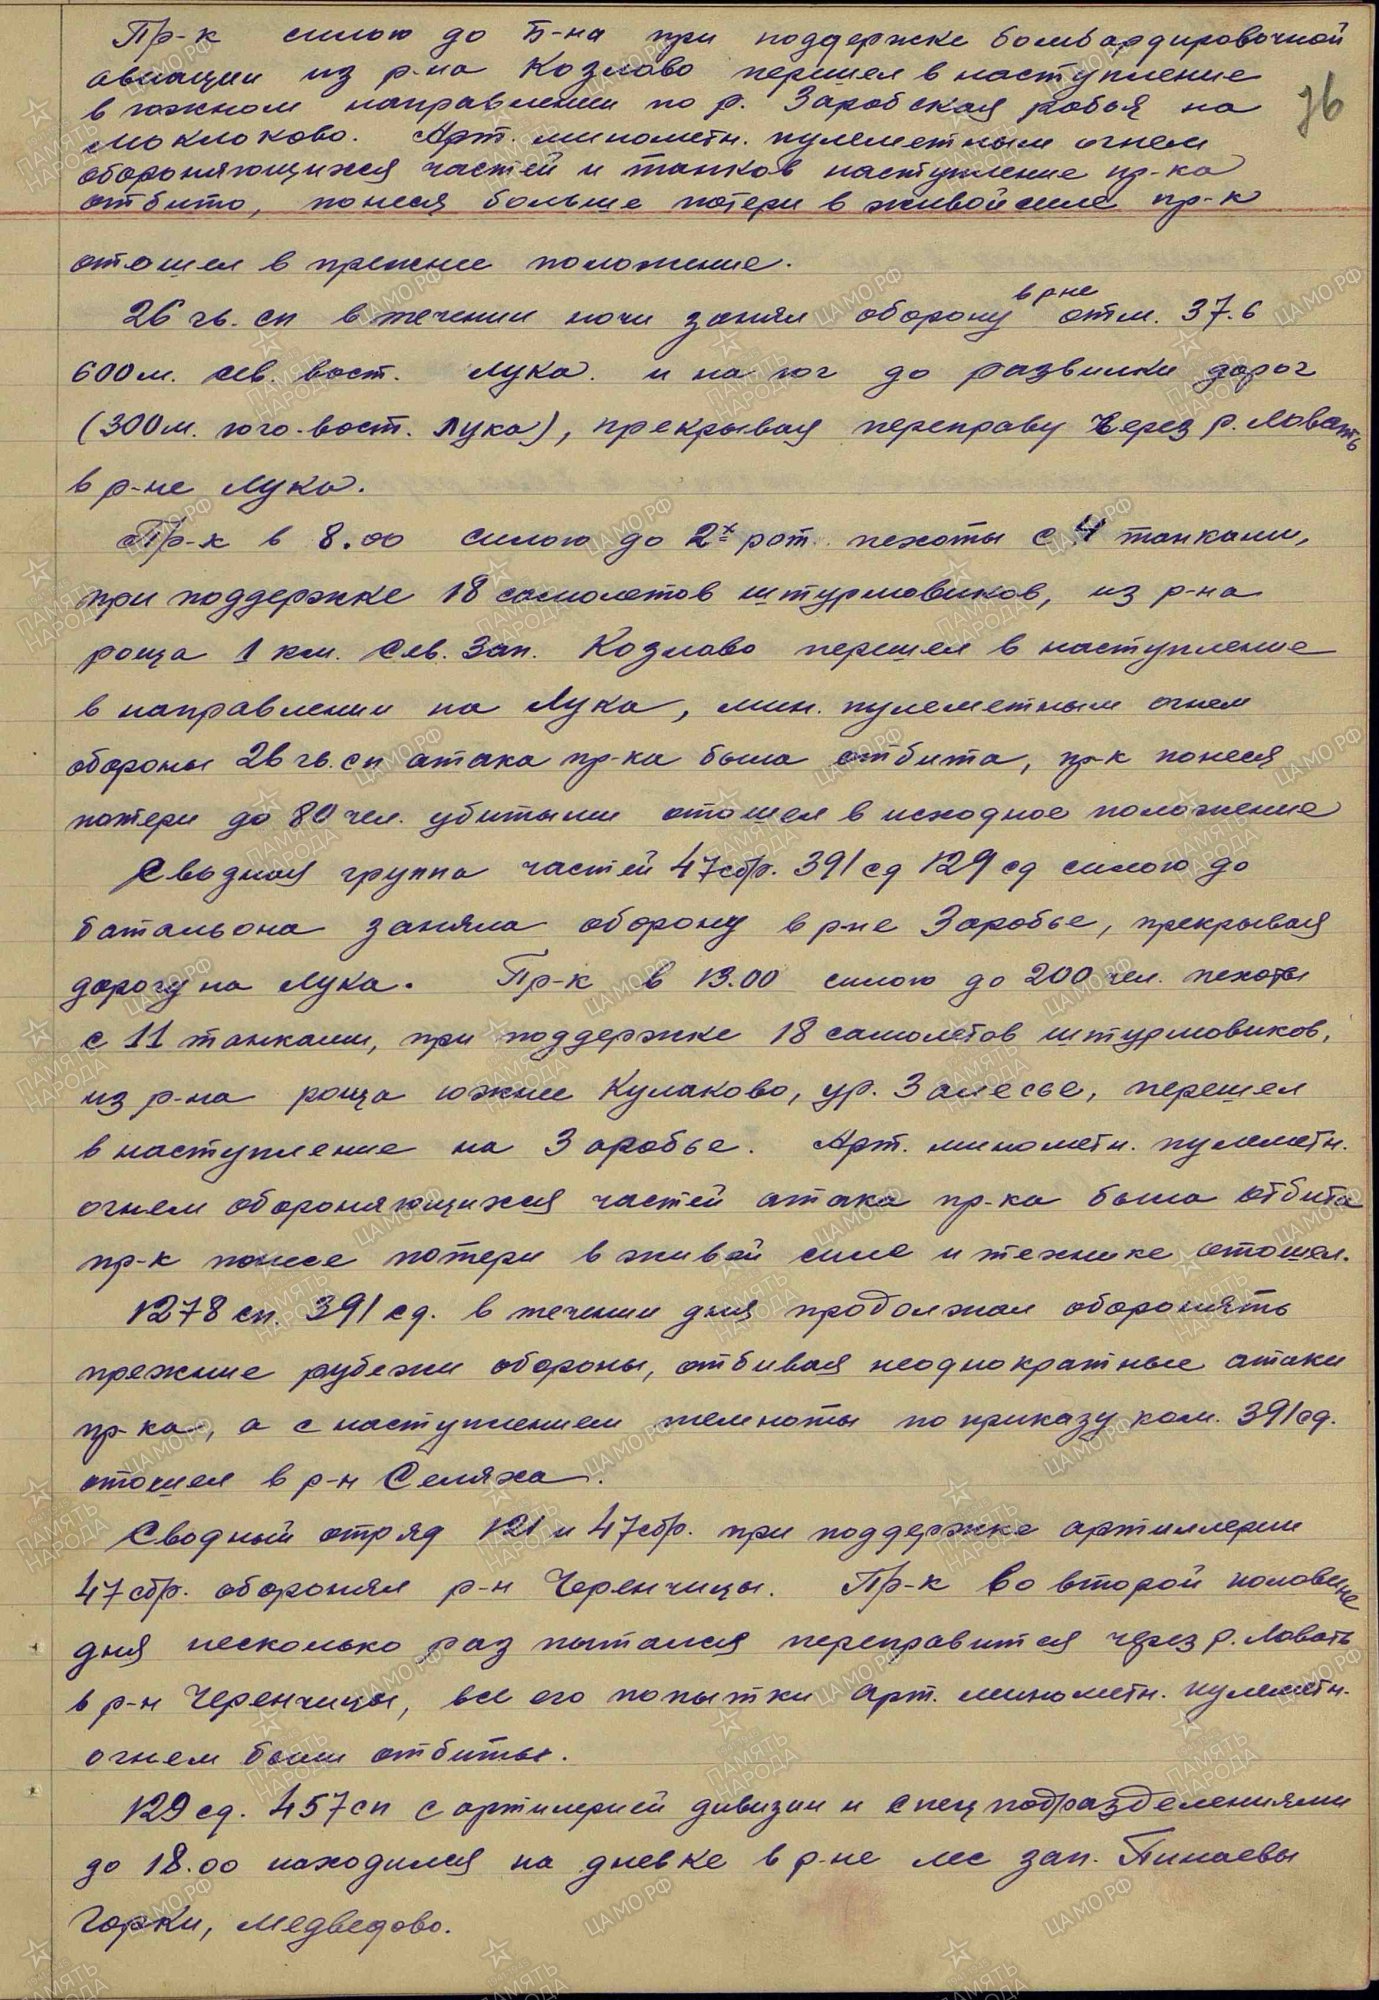 Пр-к силою до б-на при поддержке бомбардировочной
авиации из р-на Козлово перешел в наступление
в южном направлении по р. Заробская робья на
Моклоково. Арт. минометн. пулеметным огнем
обороняющихся частей и танков наступление пр-ка
отбито, понеся больше потери в живой силе пр-к
отошел в прежнее положение.
26 гв. сп в течении ночи занял оборону в рне отм. 37.6
600 м. сев. вост. Лука. и на юг до развилки дорог
(300 м. юго-вост. Лука), прекрывая переправу через р. Ловать
в р-не Лука.
Пр-к в 8.00 силою до 2х рот пехоты с 4 танками,
при поддержке 18 самолетов штурмовиков, из р-на
роща 1 км. Сев. Зап. Козлово перешел в наступление
в направлении на Лука, мин. пулеметным огнем
обороны 26 гв. сп атака пр-ка была отбита, пр-к понеся
потери до 80 чел. убитыми отошел в исходное положение
Сводная группа частей 47 сбр. 391 сд 129 сд силою до
батальона заняла оборону в р-не Заробье, прекрывая
дорогу на Лука. Пр-к в 13.00 силою до 200 чел. пехоты
с 11 танками, при поддержке 18 самолетов штурмовиков,
из р-на роща южнее Кулаково, ур. Залесье, перешел
в наступление на Заробье. Арт. минометн. пулеметн.
огнем обороняющихся частей атака пр-ка была отбита
пр-к понесе потери в живой силе и технике отошел.
1278 сп. 391 сд. в течении дня продолжал оборонять
прежние рубежи обороны, отбивая неоднократные атаки
пр-ка, а с наступлением темноты по приказу ком. 391 сд.
отошел в р-н Селяха.
Сводный отряд 121 и 47 сбр. при поддержке артиллерии
47 сбр. оборонял р-н Черенчицы. Пр-к во второй половине
дня несколько раз пытался переправится через р. Ловать
в р-н Черенчицы, все его попытки арт. минометн. пулеметн.
огнем были отбиты.
129 сд. 457 сп с артилерией дивизии и спецподразделениями
до 18.00 находился на дневке в р-не лес зап. Пинаевы
Горки, Медведово.
76
ПАМЯТЬ НАРОДА
ЦАМО РФ